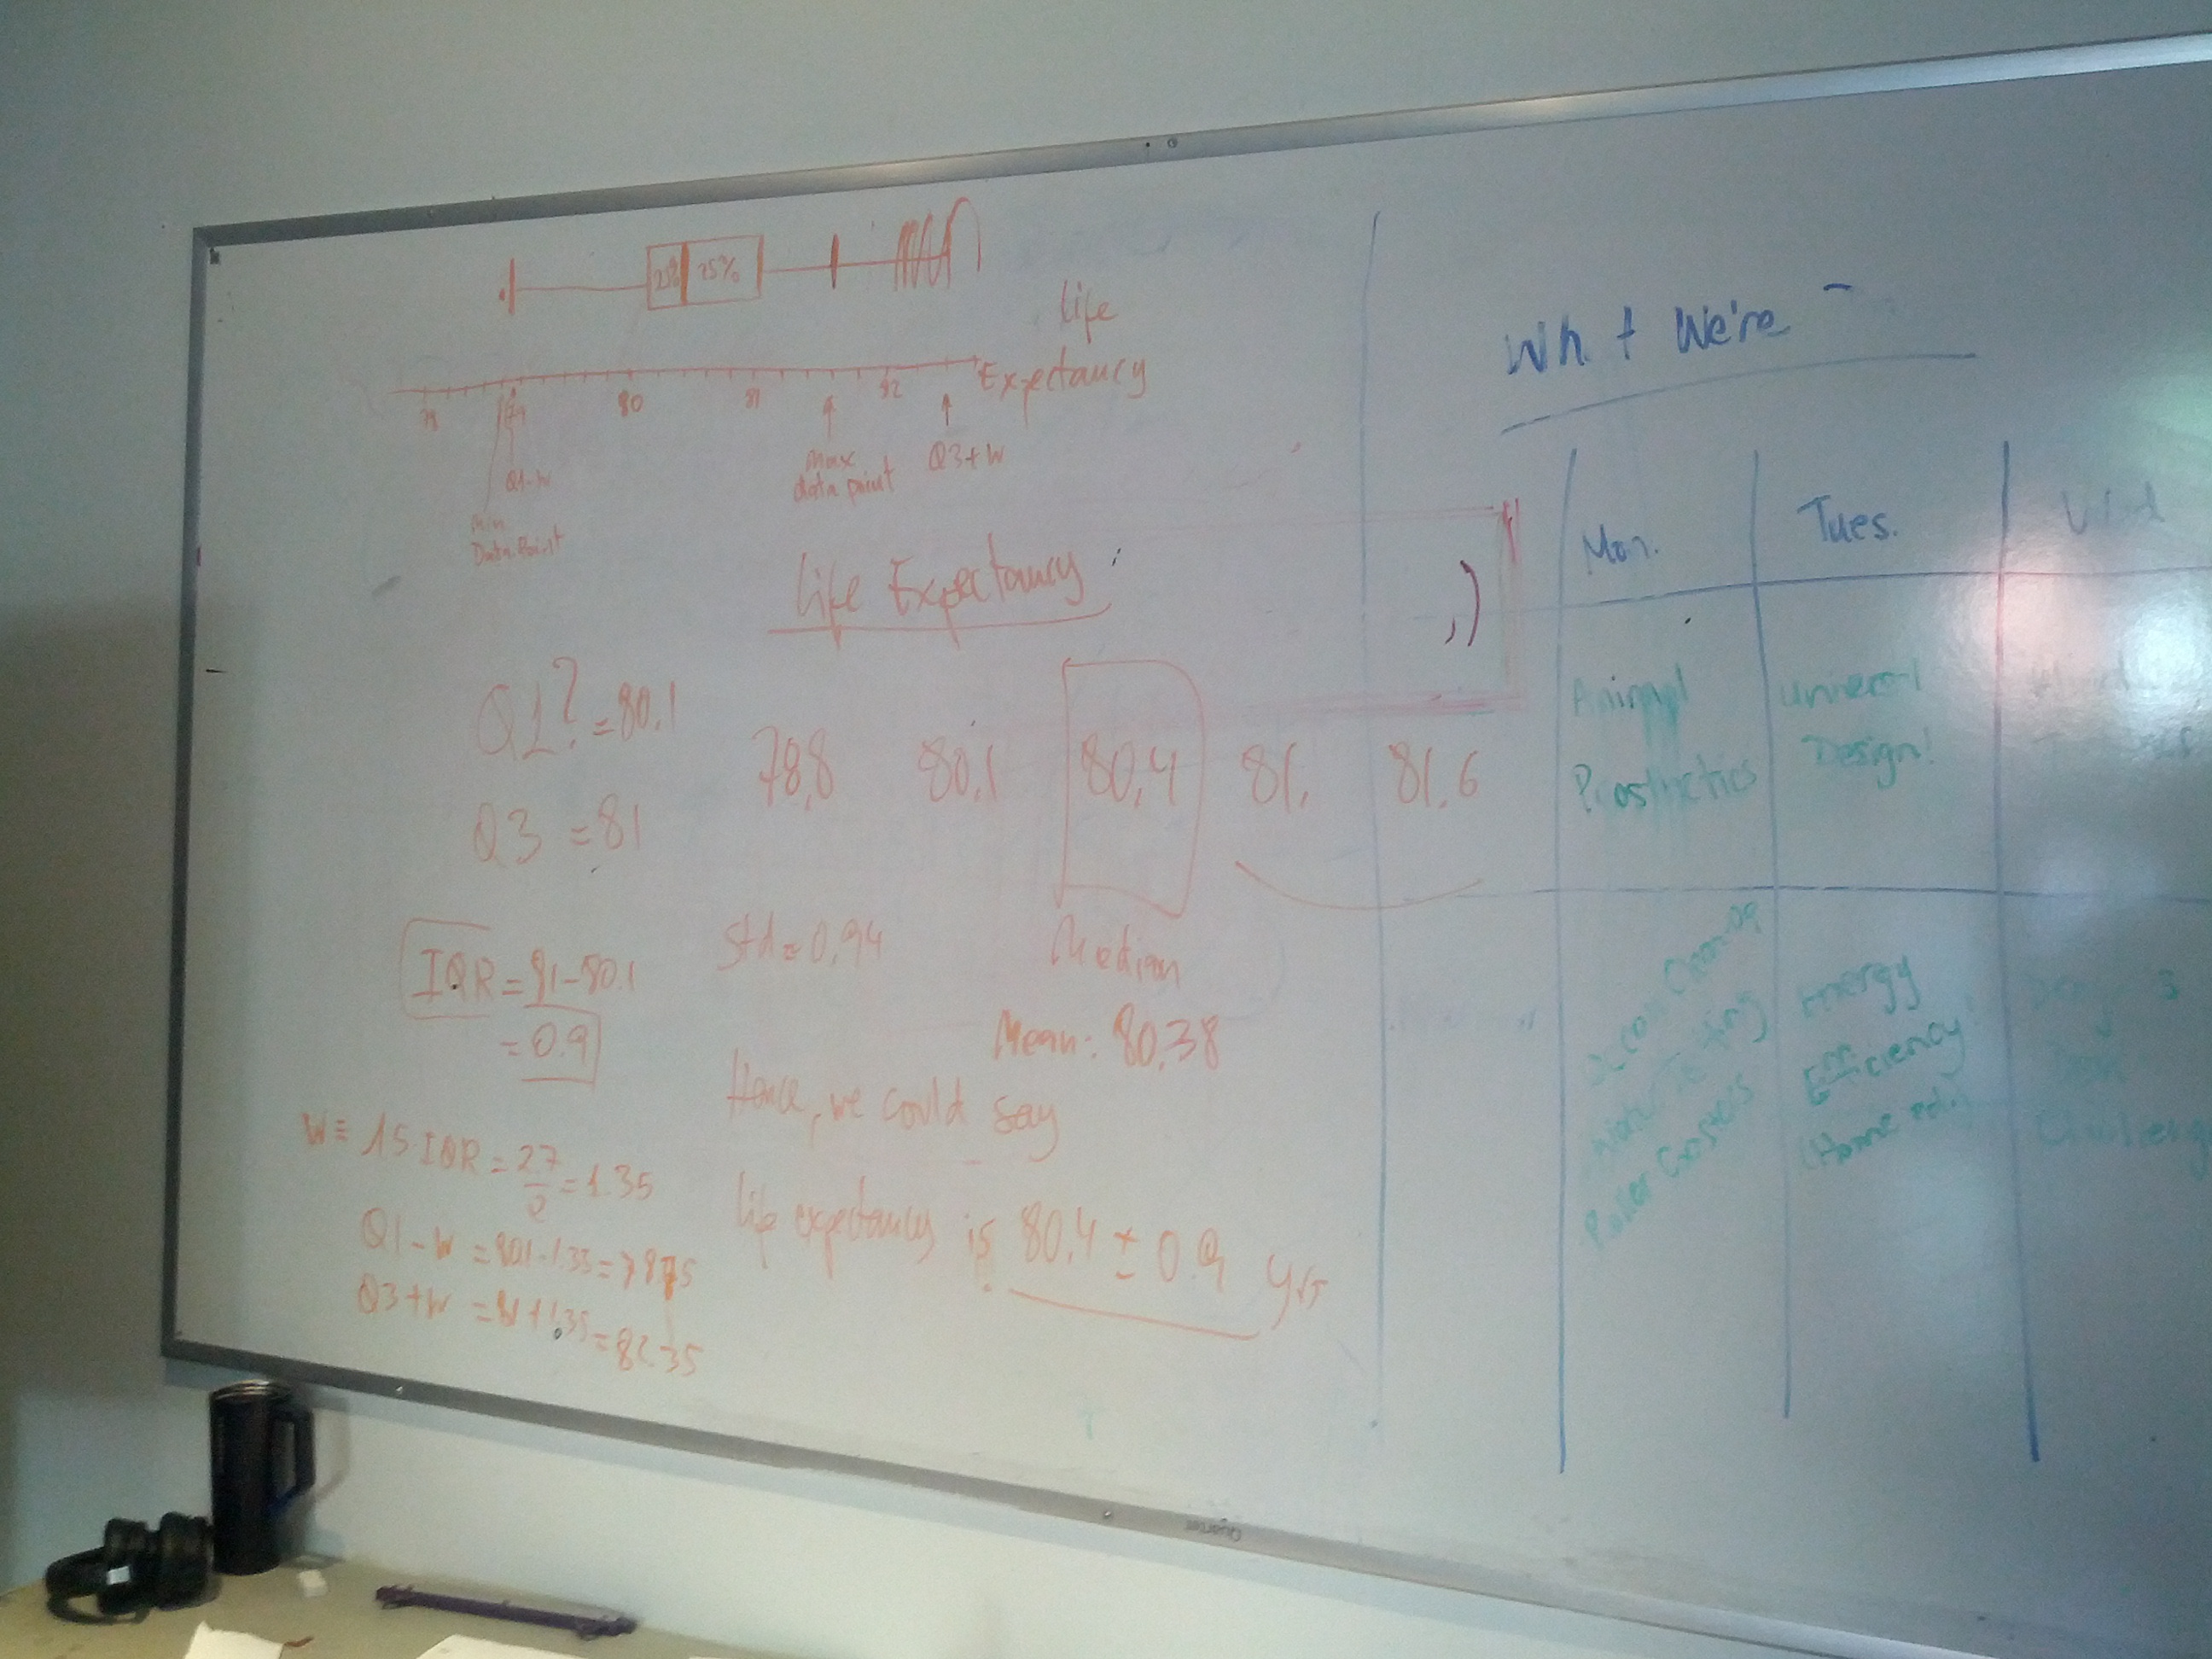 25% 25%
Life
Expectancy
79 80 81 82
Q1-W
Min
Data Point
Max
data point
Q3+W
Life Expectancy
Q1? = 80.1
Q3 = 81
78.8 80.1 80.4 81. 81.6
Median
IQR = 81-80.1
= 0.9
Std = 0.94
Mean: 80.38
W = 1.5 IQR = 27/2 = 1.35
Q1-W = 80.1-1.35 = 78.75
Q3+W = 81+1.35 = 82.35
Hence, we could say
life expectancy is 80.4 ± 0.9 yrs
We're
Mon. Tues.
Animal
Prosthetics
Universal
Design!
Energy
Efficiency
(Home
Roller Coasters
Challenge
Quartet